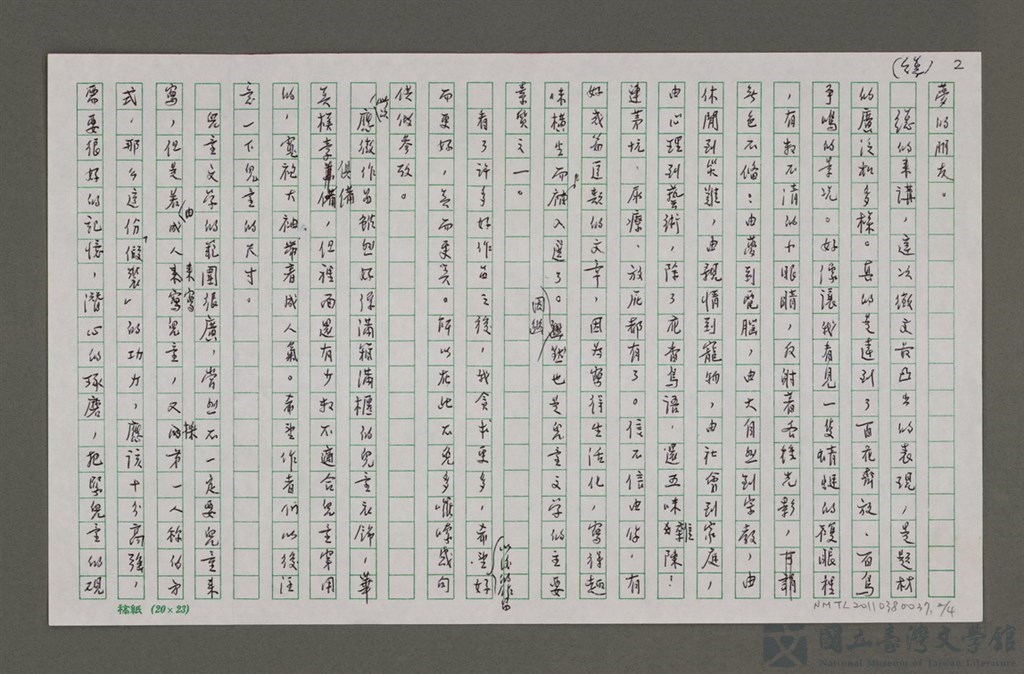 2
(续)
夢的朋友。
總的來講，這次徵文最凸出的表現，是題材
的廣泛和多樣。真的是達到了百花齊放、百鳥
爭鳴的景況。好像讓我看見一隻蜻蜓的複眼裡
，有數不清的小眼睛，反射著各樣光影，可謂
無色不備：由夢到電腦，由大自然到宇宙，由
休閒到災難，由親情到寵物，由社會到家庭，
由心理到藝術，除了鳥語，還五味雜陳！
連茅坑、尿療、放屁都有了。信不信由你，有
好幾篇這類的文章，因為寫得生活化，寫得趣
味橫生而被入選了。因趣也是兒童文學的主要
素質之一。
看了許多好作品之後，我貪求更多，希望以後的作品好
而更好，美而更美。所以在此不免多嘮嗦幾句
供做參攷。
應徵作品雖然好像滿箱滿櫃的兒童衣飾，華
美樣俱備，但裡面還有少數不適合兒童穿用
的，寬袍大袖帶著成人氣。希望作者們以後注
意一下兒童的尺寸。
兒童文學的範圍很廣，當然不一定要兒童來
寫，但是若由成人來寫兒童，又採第一人稱的方
式，那么這份「假裝」的功力，應該十分高強，
需要很好的記憶，潛心的琢磨，把學兒童的視
稿紙 (20×23)
NMTL20110380037, 2/4
國立臺灣文學館
National Museum of Taiwan Literature